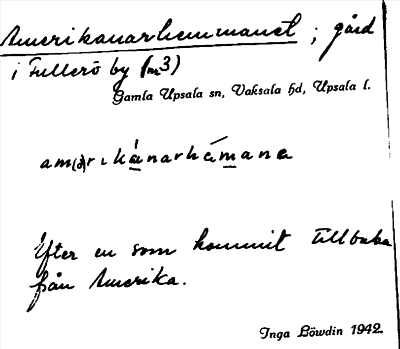 Amerikanarhemmanet ; gård
i Fullerö by (nr 3)
Gamla Upsala sn, Vaksala hd, Upsala l.
am(ə)rıkánarhémana
Efter en som kommit tillbaka
från Amerika.
Inga Löwdin 1942.